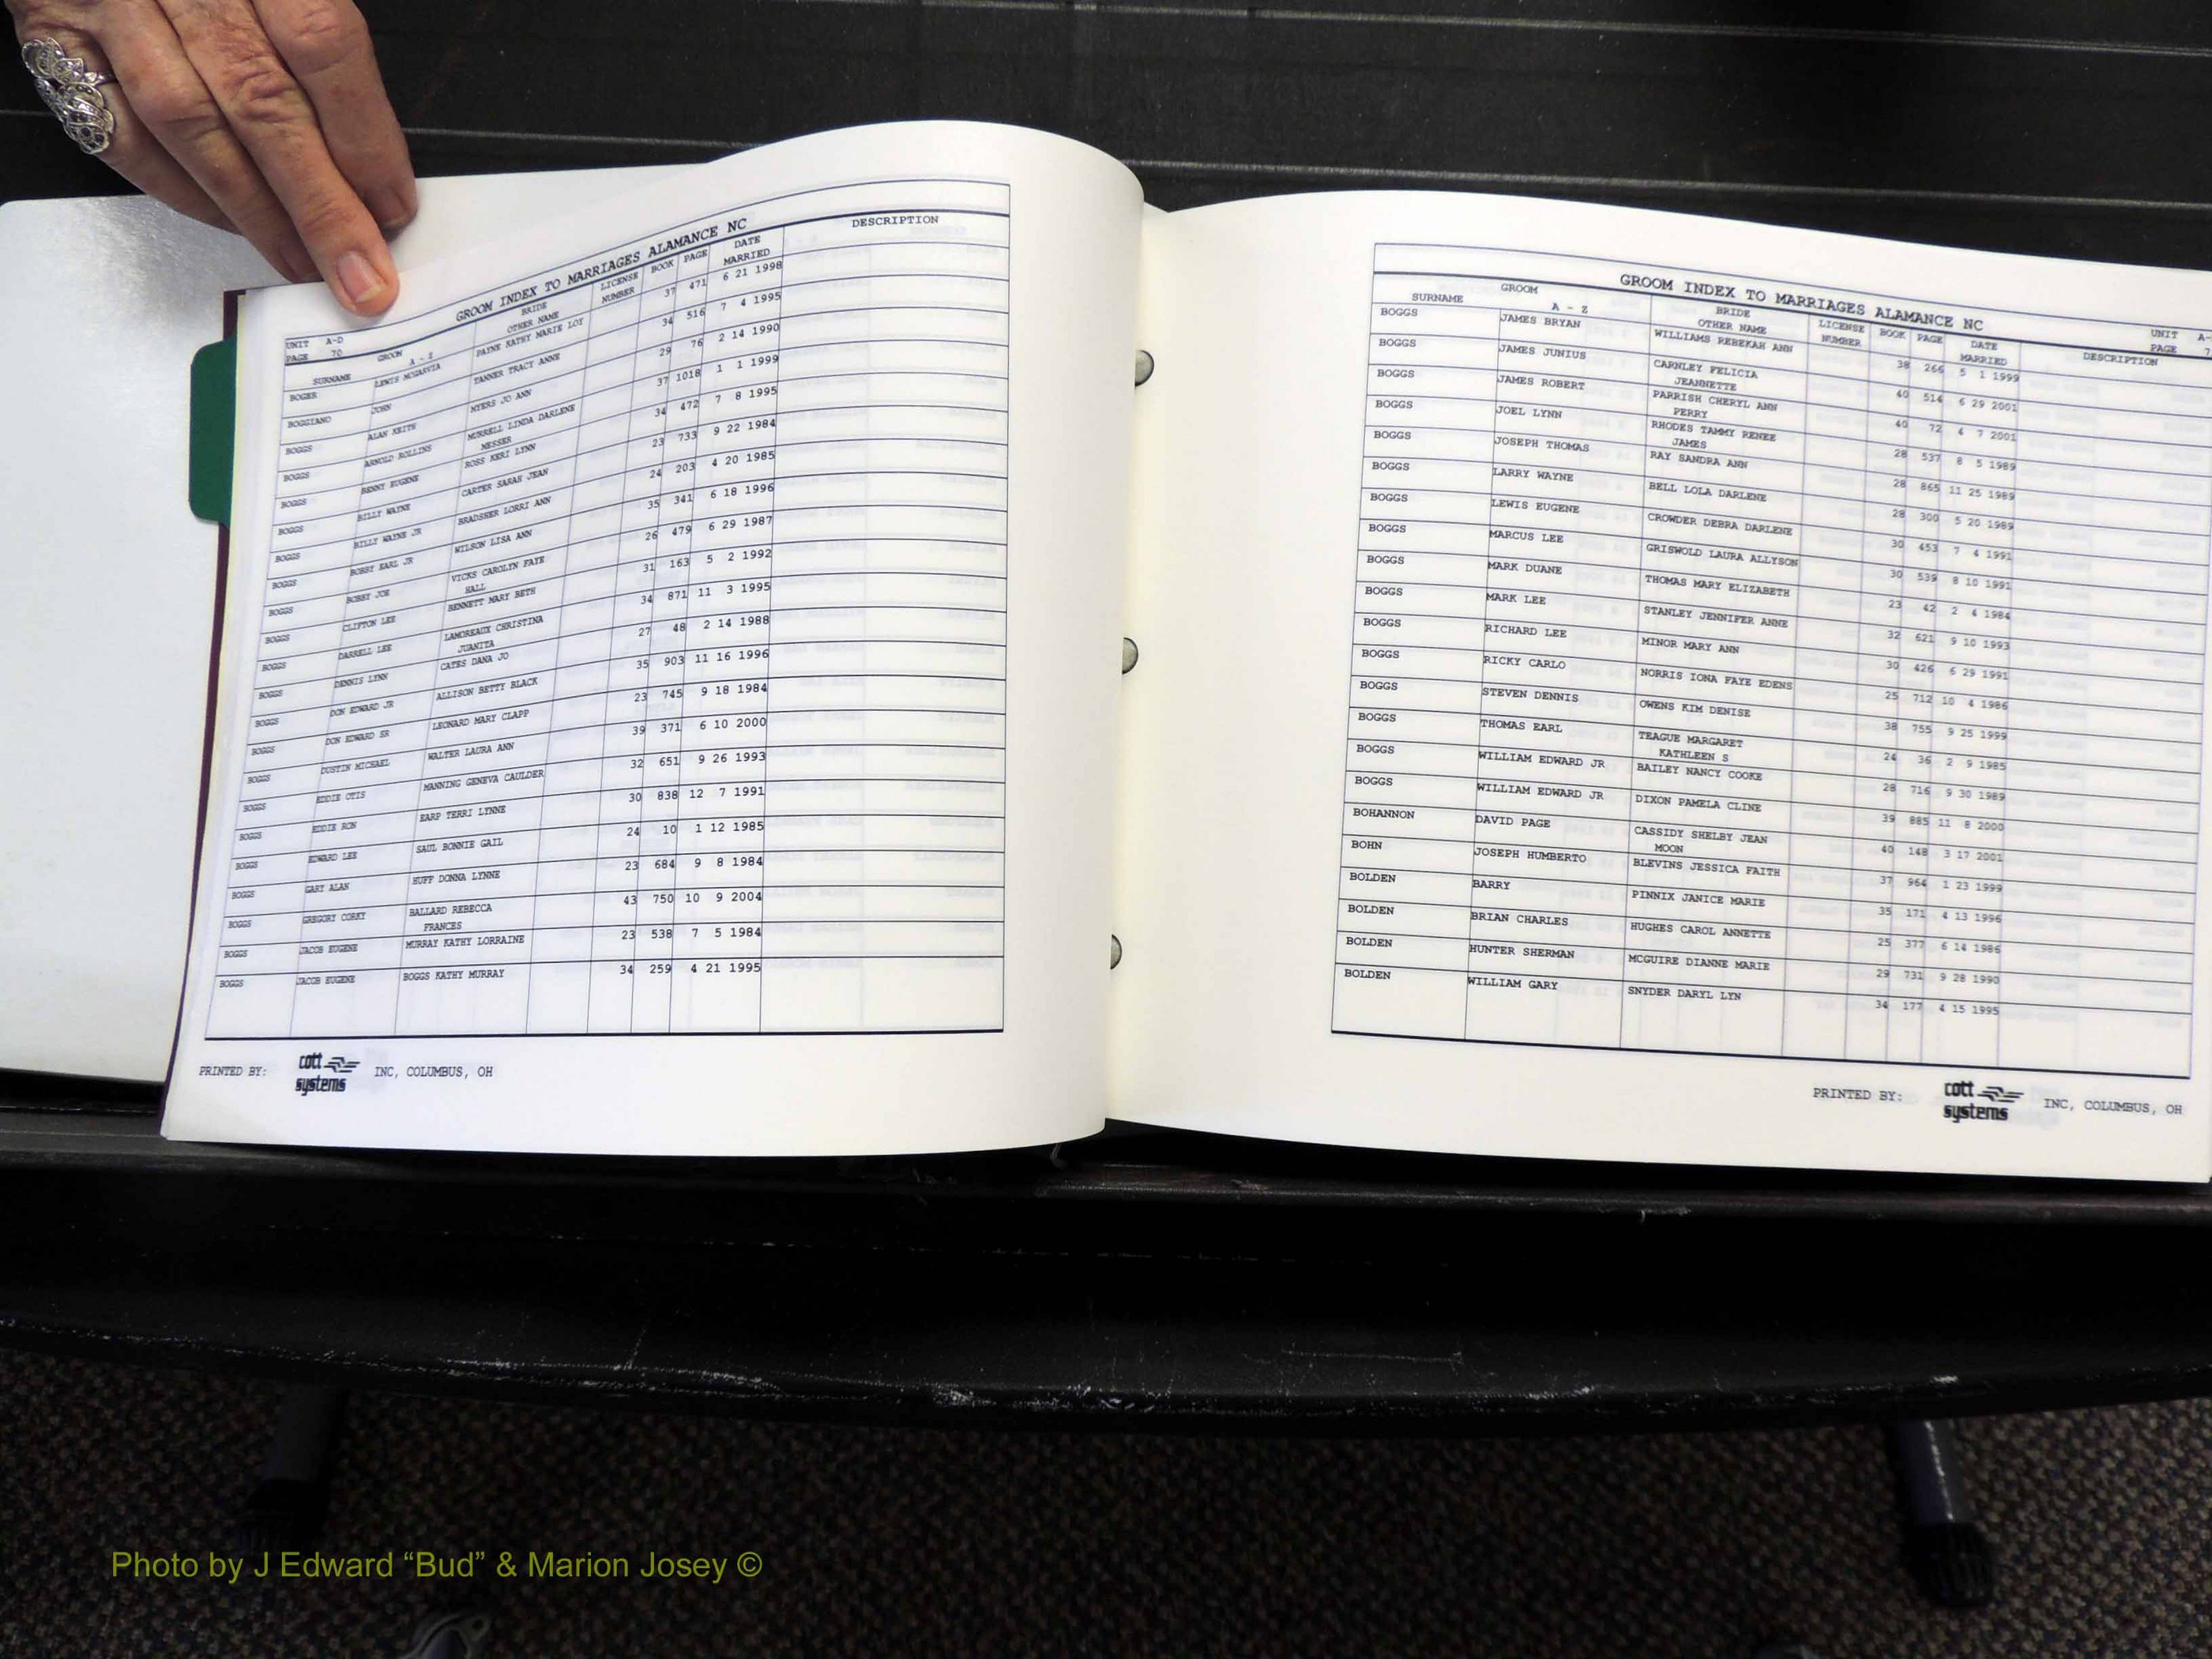 GROOM INDEX TO MARRIAGES ALAMANCE NC
UNIT A-D
PAGE 70
SURNAME GROOM A - Z BRIDE OTHER NAME LICENSE NUMBER BOOK PAGE DATE MARRIED DESCRIPTION
BOGER LEWIS MCGARVIA PAYNE KATHY MARIE LOY 37 471 6 21 1998
BOGGIANO JOHN TANNER TRACY ANNE 34 516 7 4 1995
BOGGS ALAN KEITH MYERS JO ANN 29 76 2 14 1990
BOGGS ARNOLD ROLLINS MURRELL LINDA DARLENE 37 1018 1 1 1999
MESSER
BOGGS BENNY EUGENE ROSS KERI LYNN 34 472 7 8 1995
BOGGS BILLY WAYNE CARTER SARAH JEAN 23 733 9 22 1984
BOGGS BILLY WAYNE JR BRADSHER LORRI ANN 24 203 4 20 1985
BOGGS BOBBY EARL JR WILSON LISA ANN 35 341 6 18 1996
BOGGS BOBBY JOE VICKS CAROLYN FAYE 26 479 6 29 1987
HALL
BOGGS CLIFTON LEE BENNETT MARY BETH 31 163 5 2 1992
BOGGS DARRELL LEE LAMOREAUX CHRISTINA 34 871 11 3 1995
JUANITA
BOGGS DENNIS LYNN CATES DANA JO 27 48 2 14 1988
BOGGS DON EDWARD JR ALLISON BETTY BLACK 35 903 11 16 1996
BOGGS DON EDWARD SR LEONARD MARY CLAPP 23 745 9 18 1984
BOGGS DUSTIN MICHAEL WALTER LAURA ANN 39 371 6 10 2000
BOGGS EDDIE OTIS MANNING GENEVA CAULDER 32 651 9 26 1993
BOGGS EDDIE RON EARP TERRI LYNNE 30 838 12 7 1991
BOGGS EDWARD LEE SAUL BONNIE GAIL 24 10 1 12 1985
BOGGS GARY ALAN HUFF DONNA LYNNE 23 684 9 8 1984
BOGGS GREGORY CORKY BALLARD REBECCA 43 750 10 9 2004
FRANCES
BOGGS JACOB EUGENE MURRAY KATHY LORRAINE 23 538 7 5 1984
BOGGS JACOB EUGENE BOGGS KATHY MURRAY 34 259 4 21 1995
PRINTED BY: cott systems INC, COLUMBUS, OH
GROOM INDEX TO MARRIAGES ALAMANCE NC
UNIT A-
PAGE 7
SURNAME GROOM A - Z BRIDE OTHER NAME LICENSE NUMBER BOOK PAGE DATE MARRIED DESCRIPTION
BOGGS JAMES BRYAN WILLIAMS REBEKAH ANN 38 266 5 1 1999
BOGGS JAMES JUNIUS CARNLEY FELICIA 40 514 6 29 2001
JEANNETTE
BOGGS JAMES ROBERT PARRISH CHERYL ANN 40 72 4 7 2001
PERRY
BOGGS JOEL LYNN RHODES TAMMY RENEE 28 537 8 5 1989
JAMES
BOGGS JOSEPH THOMAS RAY SANDRA ANN 28 865 11 25 1989
BOGGS LARRY WAYNE BELL LOLA DARLENE 28 300 5 20 1989
BOGGS LEWIS EUGENE CROWDER DEBRA DARLENE 30 453 7 4 1991
BOGGS MARCUS LEE GRISWOLD LAURA ALLYSON 30 539 8 10 1991
BOGGS MARK DUANE THOMAS MARY ELIZABETH 23 42 2 4 1984
BOGGS MARK LEE STANLEY JENNIFER ANNE 32 621 9 10 1993
BOGGS RICHARD LEE MINOR MARY ANN 30 426 6 29 1991
BOGGS RICKY CARLO NORRIS IONA FAYE EDENS 25 712 10 4 1986
BOGGS STEVEN DENNIS OWENS KIM DENISE 38 755 9 25 1999
BOGGS THOMAS EARL TEAGUE MARGARET 24 36 2 9 1985
KATHLEEN S
BOGGS WILLIAM EDWARD JR BAILEY NANCY COOKE 28 716 9 30 1989
BOGGS WILLIAM EDWARD JR DIXON PAMELA CLINE 39 885 11 8 2000
BOHANNON DAVID PAGE CASSIDY SHELBY JEAN 40 148 3 17 2001
MOON
BOHN JOSEPH HUMBERTO BLEVINS JESSICA FAITH 37 964 1 23 1999
BOLDEN BARRY PINNIX JANICE MARIE 35 171 4 13 1996
BOLDEN BRIAN CHARLES HUGHES CAROL ANNETTE 25 377 6 14 1986
BOLDEN HUNTER SHERMAN MCGUIRE DIANNE MARIE 29 731 9 28 1990
BOLDEN WILLIAM GARY SNYDER DARYL LYN 34 177 4 15 1995
PRINTED BY: cott systems INC, COLUMBUS, OH
Photo by J Edward “Bud” & Marion Josey ©